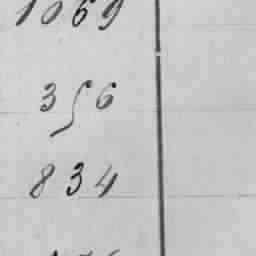 1069
356
834